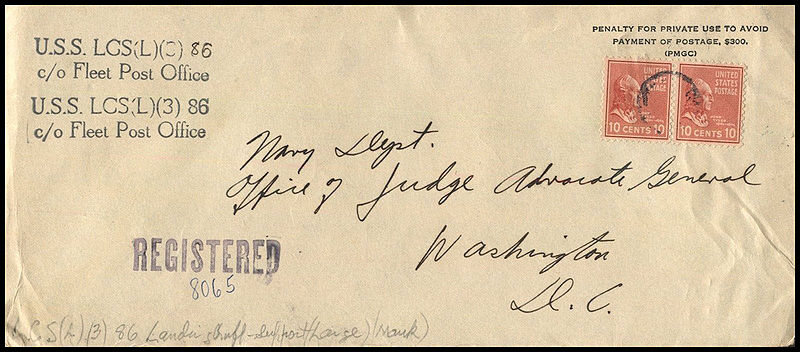 U.S.S. LCS(L)(3) 86
c/o Fleet Post Office
U.S.S. LCS(L)(3) 86
c/o Fleet Post Office
PENALTY FOR PRIVATE USE TO AVOID
PAYMENT OF POSTAGE, $300.
(PMGC)
UNITED
STATES
POSTAGE
JOHN
TYLER
10 CENTS 10
UNITED
STATES
POSTAGE
JOHN
TYLER
10 CENTS 10
Navy Dept.
Office of Judge Advocate General
Washington
D. C.
REGISTERED
8065
86 Landing